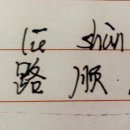 lù shùn
路顺